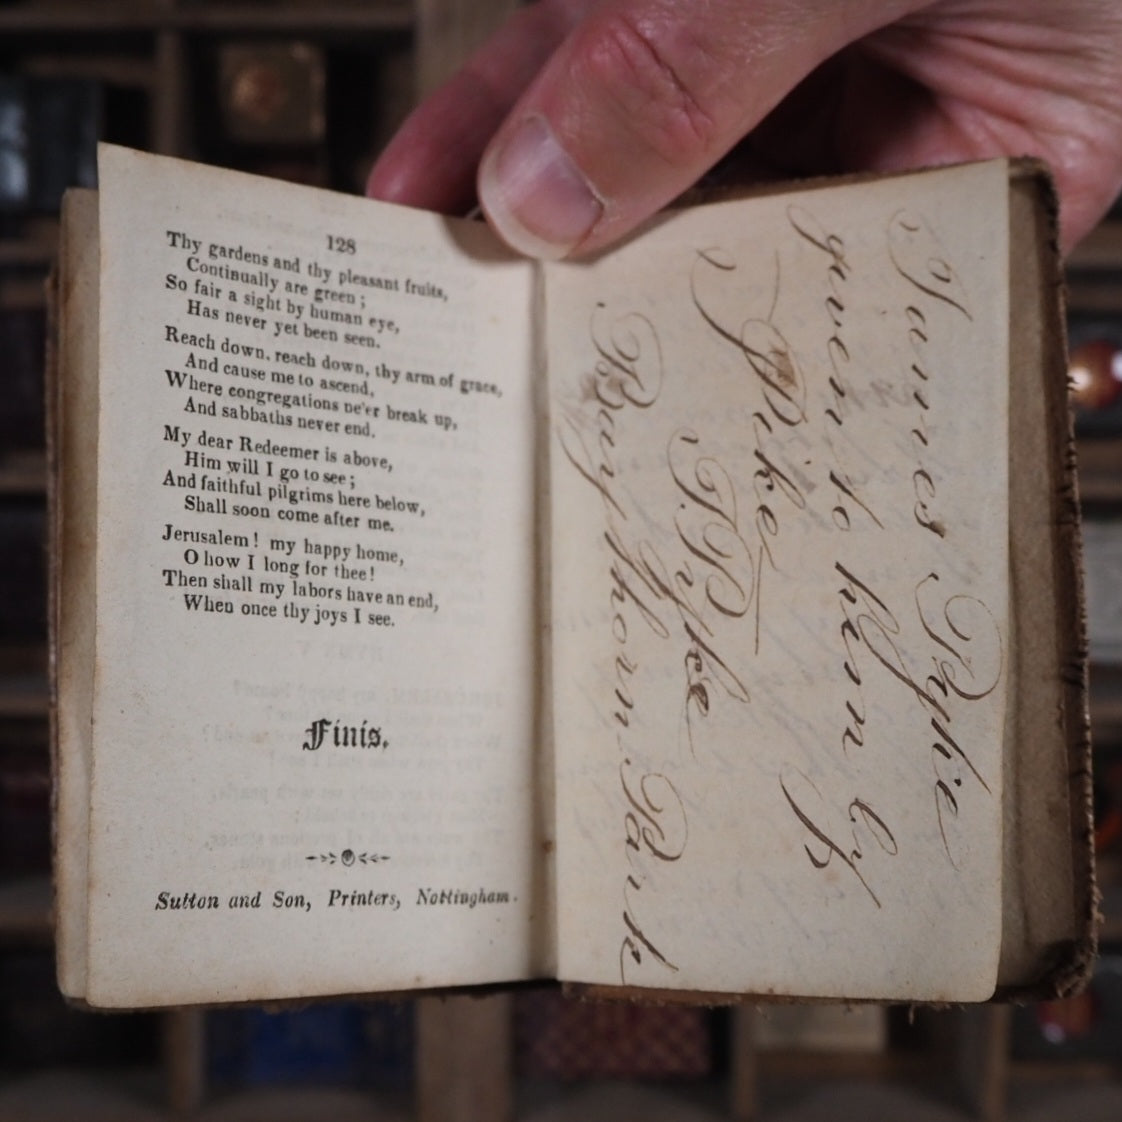 128
Thy gardens and thy pleasant fruits,
Continually are green;
So fair a sight by human eye,
Has never yet been seen.
Reach down, reach down, thy arm of grace,
And cause me to ascend,
Where congregations ne'er break up,
And sabbaths never end.
My dear Redeemer is above,
Him will I go to see;
And faithful pilgrims here below,
Shall soon come after me.
Jerusalem! my happy home,
O how I long for thee!
Then shall my labors have an end,
When once thy joys I see.
Finis.
Sutton and Son, Printers, Nottingham.
James
given to him by
J Pike
Park